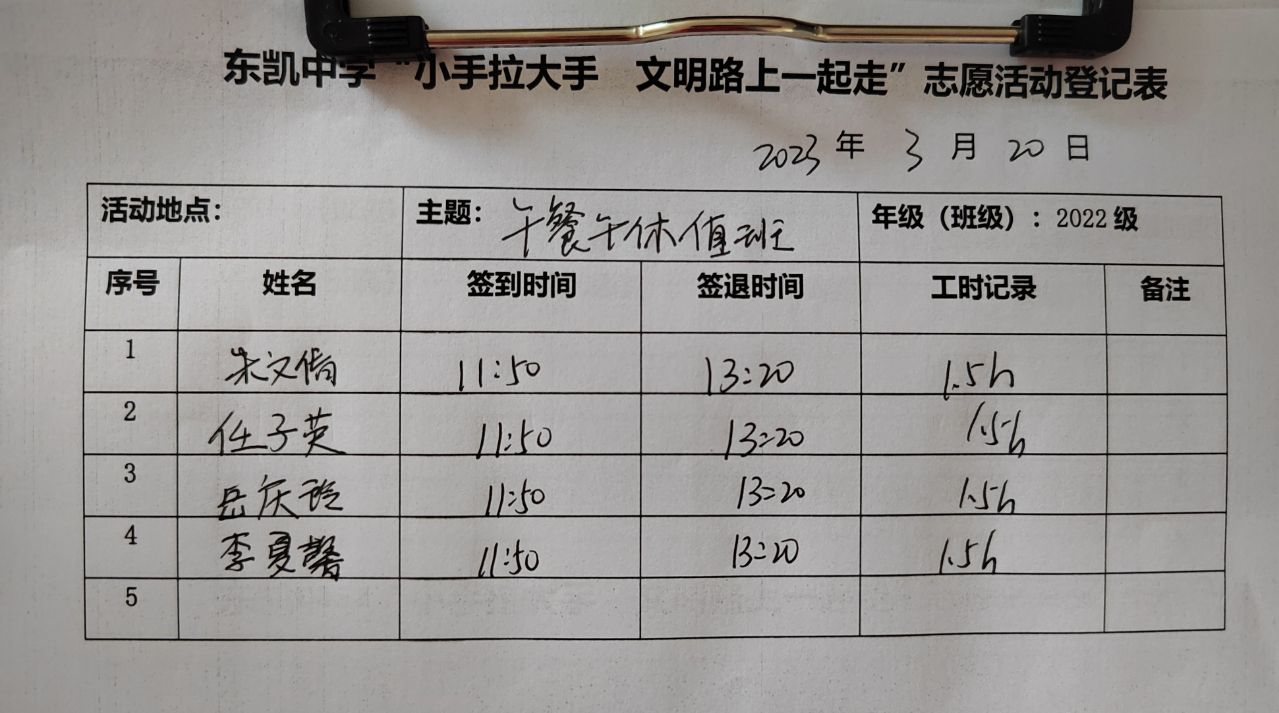 东凯中学“小手拉大手 文明路上一起走”志愿活动登记表
2023 年 3 月 20 日
活动地点： 主题：午餐午休值班 年级（班级）：2022 级
序号 姓名 签到时间 签退时间 工时记录 备注
1 朱文倩 11:50 13:20 1.5h
2 任子英 11:50 13:20 1.5h
3 岳庆玲 11:50 13:20 1.5h
4 李夏馨 11:50 13:20 1.5h
5